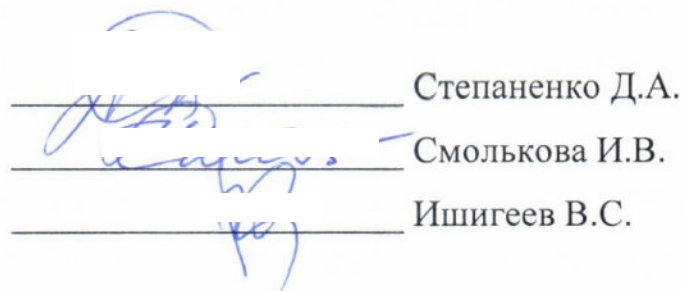 Степаненко Д.А.
Смолькова И.В.
Ишигеев В.С.